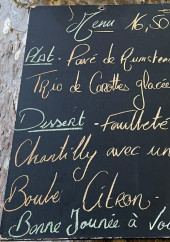 Menu 16,50
Plat - Pavé de Rumsteak
Trio de Carottes glacée
Dessert - Feuilleté
Chantilly avec un
Boule Citron -
Bonne Jounée à Vou